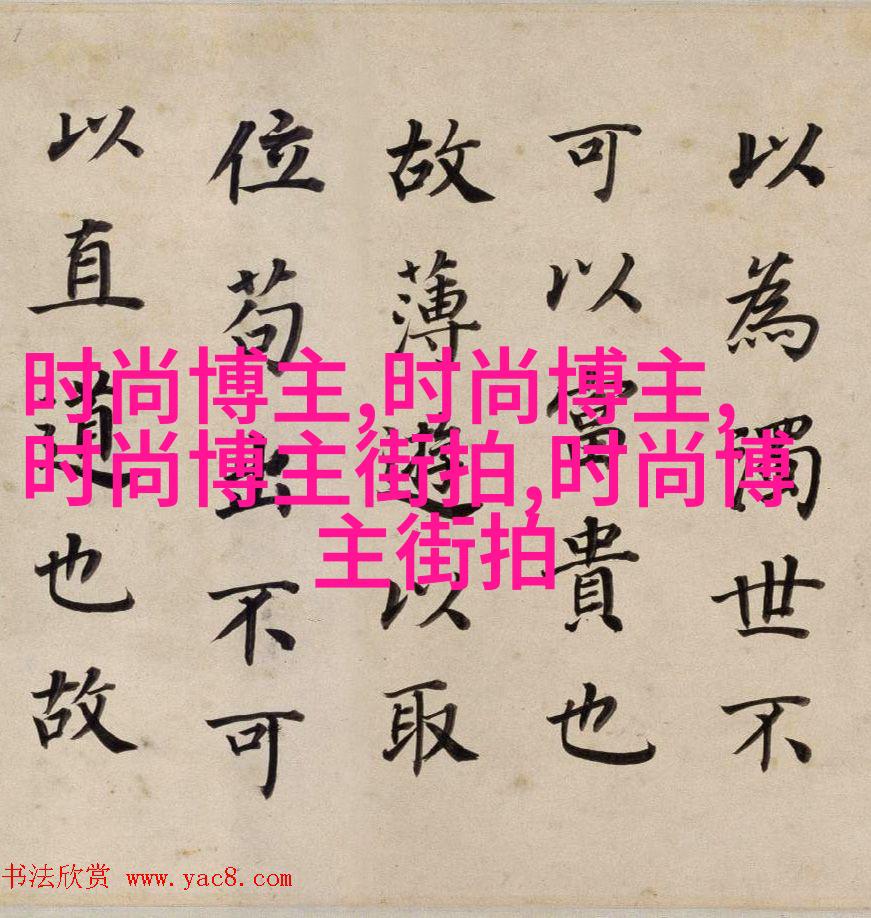 以為濁世不
可以富貴也
故薄遊以取
位苟出不可
以直道也故
时尚博主,时尚博主,
时尚博主街拍,时尚博
主街拍
书法欣赏 www.yac8.com